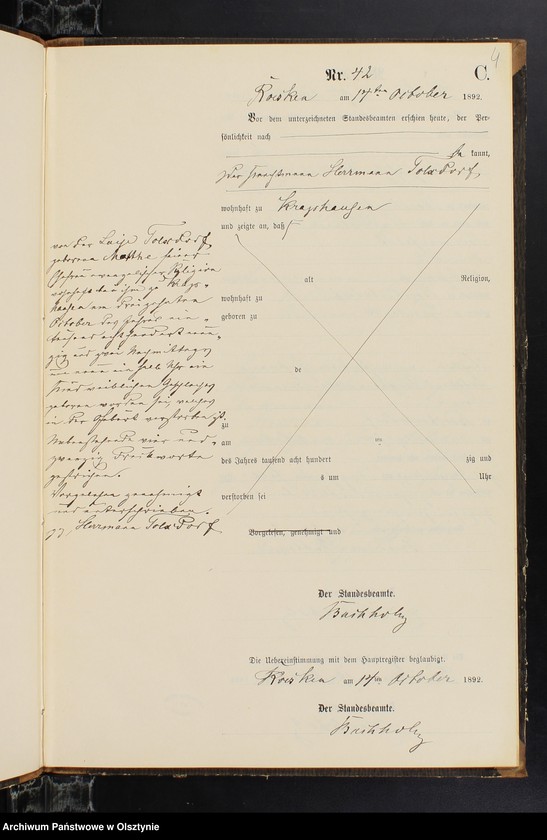 4
Nr. 42 C.
Roesken am 14ten October 1892.
Vor dem unterzeichneten Standesbeamten erschien heute, der Per-
sönlichkeit nach
kannt,
Der Herrmann Tolxdorf,
wohnhaft zu Kragshausen
und zeigte an, daß
von der Luise Tolxdorf
geborenen seiner
Ehefrau evangelischer Religion
wohnhaft bei ihm zu Krags-
hausen am dreizehnten
October des Jahres ein-
tausend achthundert neun-
zig und zwei Nachmittags
um neun ein halb Uhr ein
Kind weiblichen Geschlechts
geboren worden sei, welches
in der Geburt verstorben ist.
Nebenstehende vier und
zwanzig Druckworte
gestrichen.
Vorgelesen genehmigt
und unterschrieben.
gz. Herrmann Tolxdorf
alt Religion,
wohnhaft zu
geboren zu
de
zu
am
des Jahres tausend acht hundert zig und
s um Uhr
verstorben sei
Vorgelesen, genehmigt und
Der Standesbeamte.
Buchholz
Die Uebereinstimmung mit dem Hauptregister beglaubigt.
Roesken am 14ten October 1892.
Der Standesbeamte.
Buchholz
Archiwum Państwowe w Olsztynie